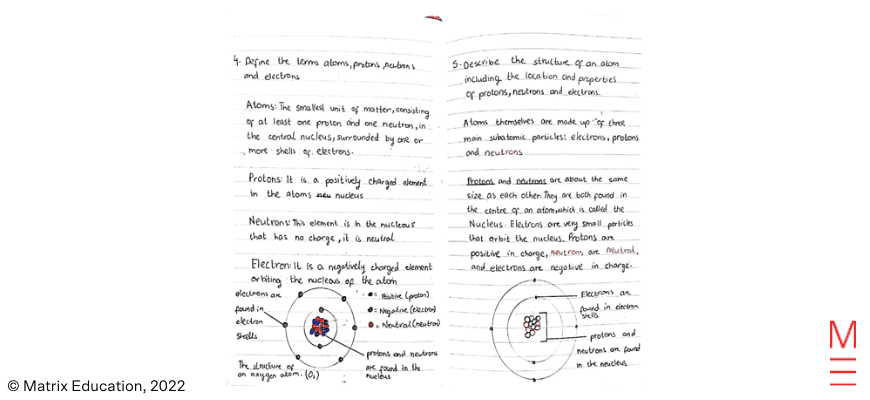 4. Define the terms atoms, protons, neutrons
and electrons
Atoms: The smallest unit of matter, consisting
of at least one proton and one neutron, in
the central nucleus, surrounded by one or
more shells of electrons.
Protons: It is a positively charged element
in the atoms nucleus
Neutrons: This element is in the nucleous
that has no charge, it is neutral
Electron: It is a negatively charged element
orbiting the nucleous of the atom
electrons are
found in
electron
shells
= Positive (proton)
= Negative (electron)
= Neutral (neutron)
protons and neutrons
are found in the
nucleus
The structure of
an oxygen atom. (O₂)
5. Describe the structure of an atom
including the location and properties
of protons, neutrons and electrons.
Atoms themselves are made up of three
main subatomic particles: electrons, protons
and neutrons
Protons and neutrons are about the same
size as each other. They are both found in
the centre of an atom, which is called the
Nucleus. Electrons are very small particles
that orbit the nucleus. Protons are
positive in charge, neutrons are neutral,
and electrons are negative in charge.
Electrons are
found in electron
shells
protons and
neutrons are found
in the nucleus
© Matrix Education, 2022